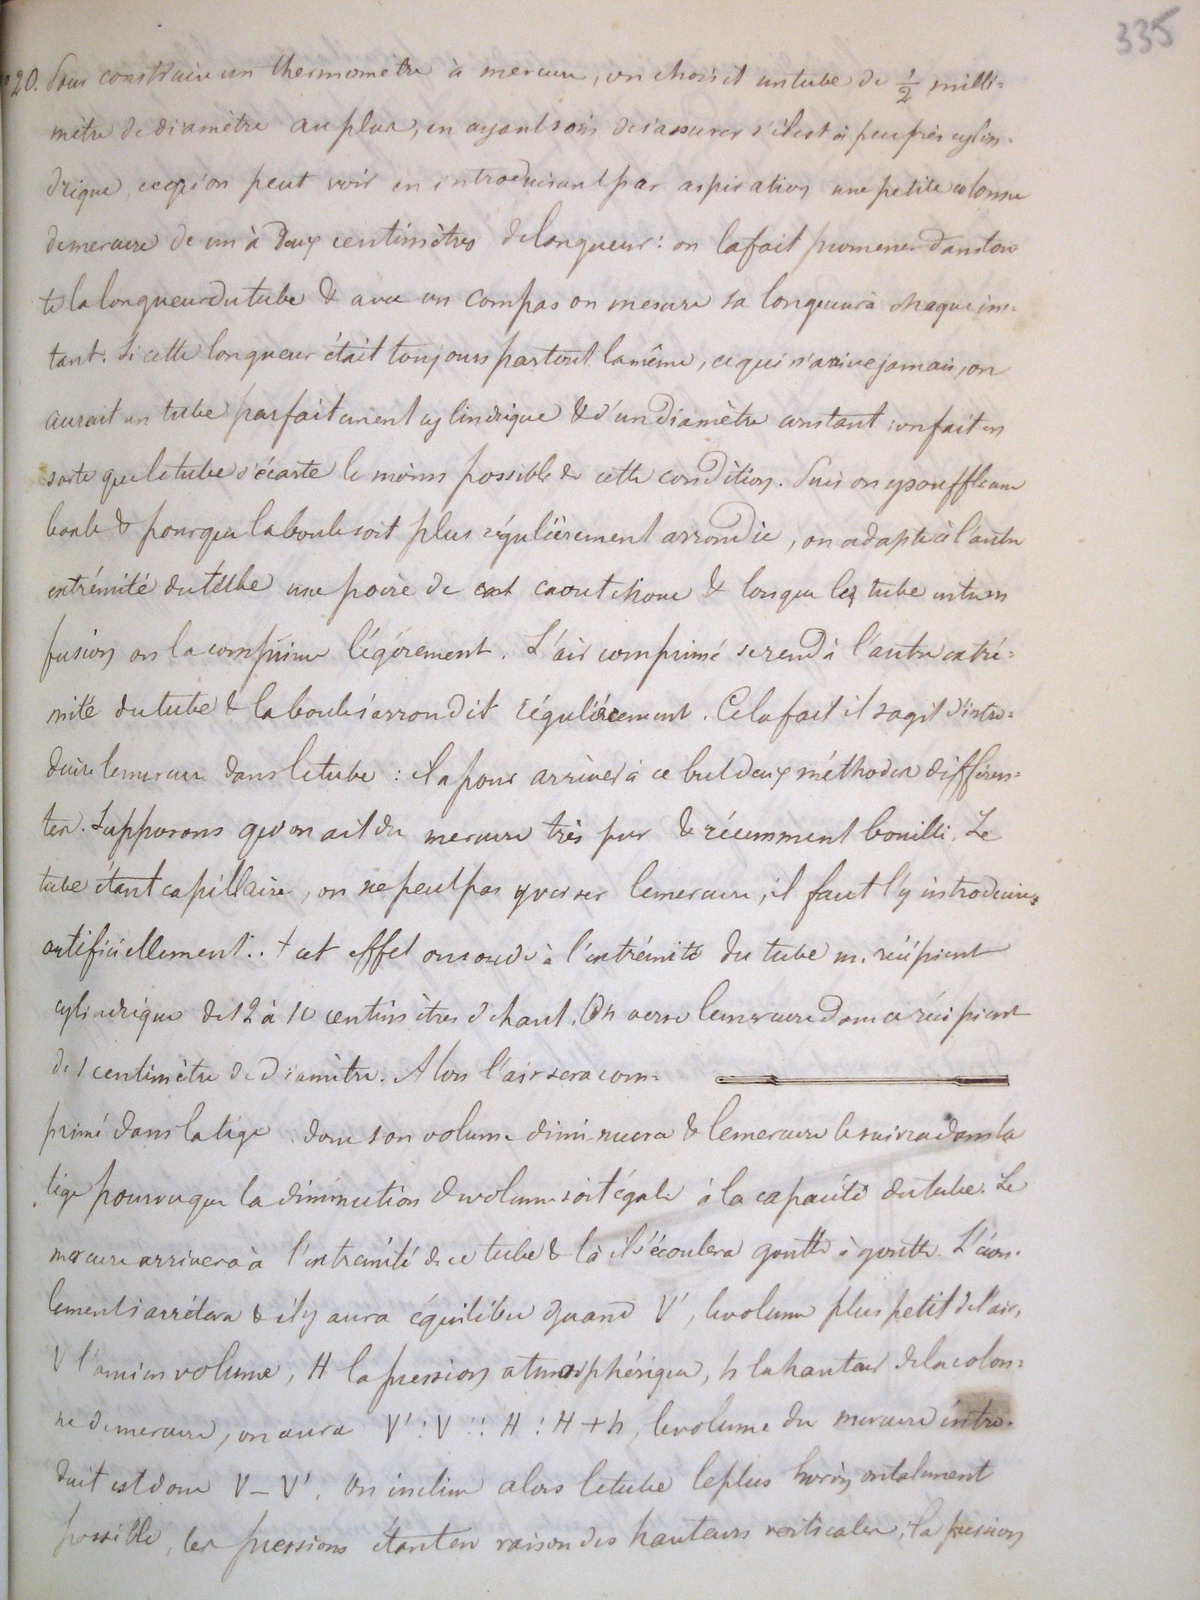 335
20. Pour construire un thermomètre à mercure, on choisit un tube de 1/2 milli=
mètre de diamètre au plus, en ayant soin de s'assurer s'il est à peu près cylin=
drique, ce qu'on peut voir en introduisant par aspiration une petite colonne
de mercure de un à deux centimètres de longueur: on la fait promener dans tou
te la longueur du tube & avec un compas on mesure sa longueur à chaque ins=
tant. Si cette longueur était toujours partout la même, ce qui n'arrive jamais, on
aurait un tube parfaitement cylindrique & d'un diamètre constant: on fait en
sorte que le tube s'écarte le moins possible de cette condition. Puis on y souffle une
boule & pour que la boule soit plus régulièrement arrondie, on adapte à l'autre
extrémité du tube une poire de caoutchouc & lorsque le tube est en
fusion on la comprime légèrement. L'air comprimé se rend à l'autre extré=
mité du tube & la boule s'arrondit régulièrement. Cela fait il s'agit d'intro=
duire le mercure dans le tube: il a pour arriver à ce but deux méthodes différen=
tes. Supposons qu'on ait du mercure très pur & récemment bouilli. Le
tube étant capillaire, on ne peut pas y verser le mercure, il faut l'y introduire
artificiellement. cet effet on soude à l'extrémité du tube un récipient
cylindrique de 12 à 10 centimètres de haut. On verse le mercure dans ce récipient
de 1 centimètre de diamètre. Alors l'air sera com=
primé dans la tige donc son volume diminuera & le mercure le suivra dans la
tige pourvu que la diminution de volume soit égale à la capacité du tube. Le
mercure arrivera à l'extrémité de ce tube & là il s'écoulera goutte à goutte. L'écou=
lement s'arrêtera & il y aura équilibre quand V', le volume plus petit de l'air,
V l'ancien volume, H la pression atmosphérique, h la hauteur de la colon=
ne de mercure, on aura V' : V :: H : H + h, le volume du mercure intro=
duit est donc V – V'. On incline alors le tube le plus horizontalement
possible, les pressions étant en raison des hauteurs verticales, la pression